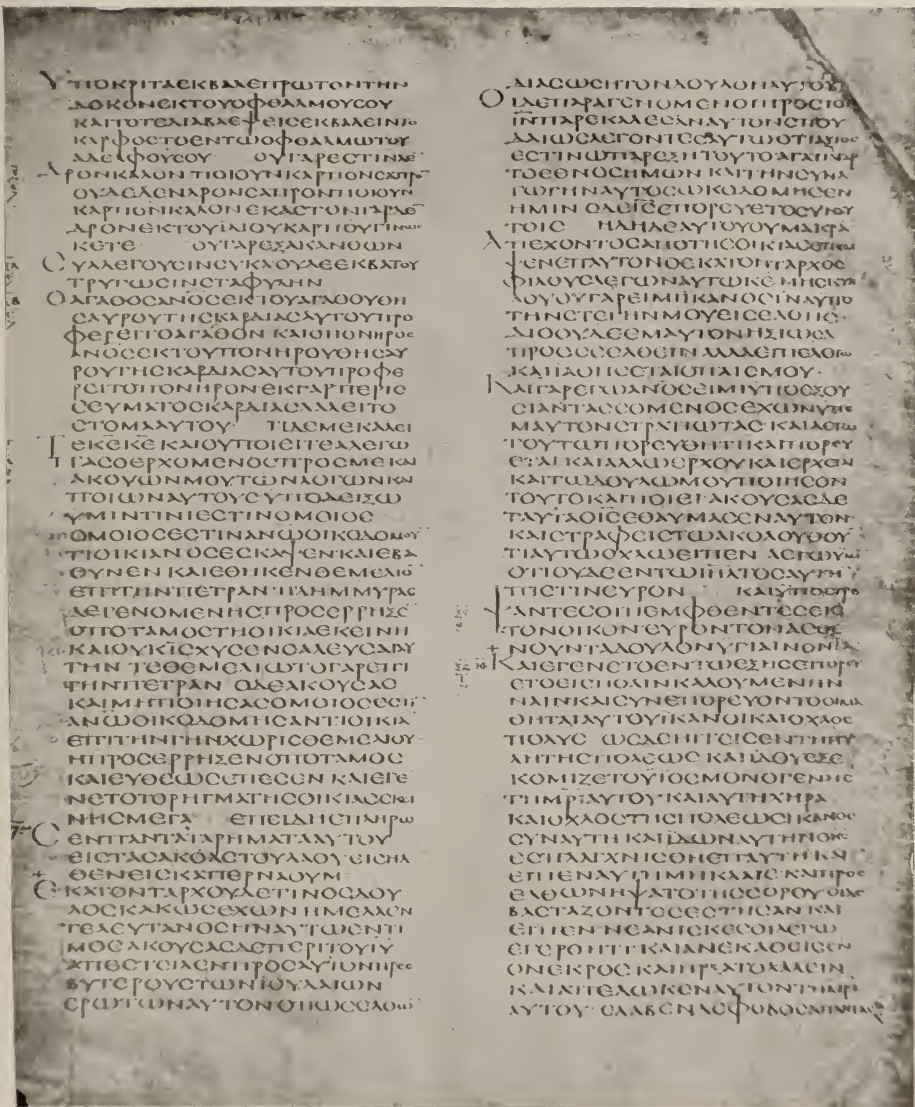 ΥΠΟΚΡΙΤΑΕΚΒΑΛΕΠΡΩΤΟΝΤΗΝ
ΔΟΚΟΝΕΚΤΟΥΟΦΘΑΛΜΟΥΣΟΥ
ΚΑΙΤΟΤΕΔΙΑΒΛΕΨΕΙΣΕΚΒΑΛΕΙΝΤΟ
ΚΑΡΦΟΣΤΟΕΝΤΩΟΦΘΑΛΜΩΤΟΥ
ΑΔΕΛΦΟΥΣΟΥ ΟΥΓΑΡΕΣΤΙΝΔΕ
ΔΡΟΝΚΑΛΟΝΠΟΙΟΥΝΚΑΡΠΟΝΣΑΠΡΟ
ΟΥΔΕΔΕΝΔΡΟΝΣΑΠΡΟΝΠΟΙΟΥΝ
ΚΑΡΠΟΝΚΑΛΟΝΕΚΑΣΤΟΝΓΑΡΔΕ
ΔΡΟΝΕΚΤΟΥΙΔΙΟΥΚΑΡΠΟΥΓΙΝΩΣ
ΚΕΤΕ ΟΥΓΑΡΕΞΑΚΑΝΘΩΝ
ΣΥΛΛΕΓΟΥΣΙΝΣΥΚΑΟΥΔΕΕΚΒΑΤΟΥ
ΤΡΥΓΩΣΙΝΣΤΑΦΥΛΗΝ
ΟΑΓΑΘΟΣΑΝΟΣΕΚΤΟΥΑΓΑΘΟΥΘΗ
ΣΑΥΡΟΥΤΗΣΚΑΡΔΙΑΣΑΥΤΟΥΠΡΟ
ΦΕΡΕΙΤΟΑΓΑΘΟΝ ΚΑΙΟΠΟΝΗΡΟΣ
ΑΝΟΣΕΚΤΟΥΠΟΝΗΡΟΥΘΗΣΑΥ
ΡΟΥΤΗΣΚΑΡΔΙΑΣΑΥΤΟΥΠΡΟΦΕ
ΡΕΙΤΟΠΟΝΗΡΟΝΕΚΓΑΡΠΕΡΙΣ
ΣΕΥΜΑΤΟΣΚΑΡΔΙΑΣΛΑΛΕΙΤΟ
ΣΤΟΜΑΑΥΤΟΥ· ΤΙΔΕΜΕΚΑΛΕΙ
ΤΕΚΕΚΕΚΑΙΟΥΠΟΙΕΙΤΕΑΛΕΓΩ
ΠΑΣΟΕΡΧΟΜΕΝΟΣΠΡΟΣΜΕΚΑΙ
ΑΚΟΥΩΝΜΟΥΤΩΝΛΟΓΩΝΚΑΙ
ΠΟΙΩΝΑΥΤΟΥΣΥΠΟΔΕΙΞΩ
ΥΜΙΝΤΙΝΙΕΣΤΙΝΟΜΟΙΟΣ
ΟΜΟΙΟΣΕΣΤΙΝΑΝΩΟΙΚΟΔΟΜΟΥ
ΤΙΟΙΚΙΑΝΟΣΕΣΚΑΨΕΝΚΑΙΕΒΑ
ΘΥΝΕΝΚΑΙΕΘΗΚΕΝΘΕΜΕΛΙΟ
ΕΠΙΤΗΝΠΕΤΡΑΝΠΛΗΜΜΥΡΑΣ
ΔΕΓΕΝΟΜΕΝΗΣΠΡΟΣΕΡΡΗΞΕ
ΟΠΟΤΑΜΟΣΤΗΟΙΚΙΑΕΚΕΙΝΗ
ΚΑΙΟΥΚΙΣΧΥΣΕΝΣΑΛΕΥΣΑΙΑΥ
ΤΗΝ ΤΕΘΕΜΕΛΙΩΤΟΓΑΡΕΠΙ
ΤΗΝΠΕΤΡΑΝ ΟΔΕΑΚΟΥΣΑΣ
ΚΑΙΜΗΠΟΙΗΣΑΣΟΜΟΙΟΣΕΣΤΙ
ΑΝΩΟΙΚΟΔΟΜΗΣΑΝΤΙΟΙΚΙΑ
ΕΠΙΤΗΝΓΗΝΧΩΡΙΣΘΕΜΕΛΙΟΥ
ΗΠΡΟΣΕΡΡΗΞΕΝΟΠΟΤΑΜΟΣ
ΚΑΙΕΥΘΕΩΣΕΠΕΣΕΝ ΚΑΙΕΓΕ
ΝΕΤΟΤΟΡΗΓΜΑΤΗΣΟΙΚΙΑΣΕΚΕΙ
ΝΗΣΜΕΓΑ ΕΠΕΙΔΗΕΠΛΗΡΩ
ΣΕΝΠΑΝΤΑΤΑΡΗΜΑΤΑΑΥΤΟΥ
ΕΙΣΤΑΣΑΚΟΑΣΤΟΥΛΑΟΥΕΙΣΗΛ
ΘΕΝΕΙΣΚΑΠΕΡΝΑΟΥΜ·
ΕΚΑΤΟΝΤΑΡΧΟΥΔΕΤΙΝΟΣΔΟΥ
ΛΟΣΚΑΚΩΣΕΧΩΝΗΜΕΛΛΕΝ
ΤΕΛΕΥΤΑΝΟΣΗΝΑΥΤΩΕΝΤΙ
ΜΟΣΑΚΟΥΣΑΣΔΕΠΕΡΙΤΟΥΙΥ
ΑΠΕΣΤΕΙΛΕΝΠΡΟΣΑΥΤΟΝΠΡΕΣ
ΒΥΤΕΡΟΥΣΤΩΝΙΟΥΔΑΙΩΝ
ΕΡΩΤΩΝΑΥΤΟΝΟΠΩΣΕΛΘΩ
ΔΙΑΣΩΣΗΤΟΝΔΟΥΛΟΝΑΥΤΟΥ
ΟΙΔΕΠΑΡΑΓΕΝΟΜΕΝΟΙΠΡΟΣΤΟ
ΙΝΠΑΡΕΚΑΛΕΣΑΝΑΥΤΟΝΣΠΟΥ
ΔΑΙΩΣΛΕΓΟΝΤΕΣΑΥΤΩΟΤΙΑΞΙΟΣ
ΕΣΤΙΝΩΠΑΡΕΞΗΤΟΥΤΟΑΓΑΠΑΓΑΡ
ΤΟΕΘΝΟΣΗΜΩΝ ΚΑΙΤΗΝΣΥΝΑ
ΓΩΓΗΝΑΥΤΟΣΩΚΟΔΟΜΗΣΕΝ
ΗΜΙΝ ΟΔΕΙΣΕΠΟΡΕΥΕΤΟΣΥΝΑΥ
ΤΟΙΣ ΗΔΗΔΕΑΥΤΟΥΟΥΜΑΚΡΑ
ΑΠΕΧΟΝΤΟΣΑΠΟΤΗΣΟΙΚΙΑΣΕΠΕΜ
ΨΕΝΕΠΑΥΤΟΝΟΕΚΑΤΟΝΤΑΡΧΟΣ
ΦΙΛΟΥΣΛΕΓΩΝΑΥΤΩΚΕΜΗΣΚΥΛ
ΛΟΥΟΥΓΑΡΕΙΜΙΙΚΑΝΟΣΙΝΑΥΠΟ
ΤΗΝΣΤΕΓΗΝΜΟΥΕΙΣΕΛΘΗΣ·
ΔΙΟΟΥΔΕΕΜΑΥΤΟΝΗΞΙΩΣΑ
ΠΡΟΣΣΕΕΛΘΕΙΝΑΛΛΑΕΙΠΕΛΟΓΩ
ΚΑΙΙΑΘΗΣΕΤΑΙΟΠΑΙΣΜΟΥ·
ΚΑΙΓΑΡΕΓΩΑΝΟΣΕΙΜΙΥΠΟΕΞΟΥ
ΣΙΑΝΤΑΣΣΟΜΕΝΟΣΕΧΩΝΥΠΕ
ΜΑΥΤΟΝΣΤΡΑΤΙΩΤΑΣΚΑΙΛΕΓΩ
ΤΟΥΤΩΠΟΡΕΥΘΗΤΙΚΑΙΠΟΡΕΥ
ΕΤΑΙΚΑΙΑΛΛΩΕΡΧΟΥΚΑΙΕΡΧΕΤΑΙ
ΚΑΙΤΩΔΟΥΛΩΜΟΥΠΟΙΗΣΟΝ
ΤΟΥΤΟΚΑΙΠΟΙΕΙΑΚΟΥΣΑΣΔΕ
ΤΑΥΤΑΟΙΣΕΘΑΥΜΑΣΕΝΑΥΤΟΝ·
ΚΑΙΣΤΡΑΦΕΙΣΤΩΑΚΟΛΟΥΘΟΥ
ΤΙΑΥΤΩΟΧΛΩΕΙΠΕΝΛΕΓΩΥΜΙ
ΟΤΙΟΥΔΕΕΝΤΩΙΗΛΤΟΣΑΥΤΗ
ΠΙΣΤΙΝΕΥΡΟΝ ΚΑΙΥΠΟΣΤΡΕ
ΨΑΝΤΕΣΟΙΠΕΜΦΘΕΝΤΕΣΕΙΣ
ΤΟΝΟΙΚΟΝΕΥΡΟΝΤΟΝΑΣΘΕ
ΝΟΥΝΤΑΔΟΥΛΟΝΥΓΙΑΙΝΟΝΤΑ
ΚΑΙΕΓΕΝΕΤΟΕΝΤΩΕΞΗΣΕΠΟΡΕΥ
ΕΤΟΕΙΣΠΟΛΙΝΚΑΛΟΥΜΕΝΗΝ
ΝΑΙΝΚΑΙΣΥΝΕΠΟΡΕΥΟΝΤΟΟΙΜΑ
ΘΗΤΑΙΑΥΤΟΥΙΚΑΝΟΙΚΑΙΟΧΛΟΣ
ΠΟΛΥΣ ΩΣΔΕΗΓΓΙΣΕΝΤΗΠΥ
ΛΗΤΗΣΠΟΛΕΩΣΚΑΙΙΔΟΥΕΞΕ
ΚΟΜΙΖΕΤΟΥΙΟΣΜΟΝΟΓΕΝΗΣ
ΤΗΜΡΙΑΥΤΟΥΚΑΙΑΥΤΗΧΗΡΑ
ΚΑΙΟΧΛΟΣΤΗΣΠΟΛΕΩΣΙΚΑΝΟΣ
ΣΥΝΑΥΤΗΚΑΙΙΔΩΝΑΥΤΗΝΟΚΣ
ΕΣΠΛΑΓΧΝΙΣΘΗΕΠΑΥΤΗΚΑΙ
ΕΙΠΕΝΑΥΤΗΜΗΚΛΑΙΕΚΑΙΠΡΟΣ
ΕΛΘΩΝΗΨΑΤΟΤΗΣΣΟΡΟΥΟΙΔΕ
ΒΑΣΤΑΖΟΝΤΕΣΕΣΤΗΣΑΝΚΑΙ
ΕΙΠΕΝΝΕΑΝΙΣΚΕΣΟΙΛΕΓΩ
ΕΓΕΡΘΗΤΙΚΑΙΑΝΕΚΑΘΕΙΣΕΝ
ΟΝΕΚΡΟΣΚΑΙΗΡΞΑΤΟΛΑΛΕΙΝ
ΚΑΙΑΠΕΔΩΚΕΝΑΥΤΟΝΤΗΜΡΙ
ΑΥΤΟΥ·ΕΛΑΒΕΝΔΕΦΟΒΟΣΑΠΑΝΤΑΣ